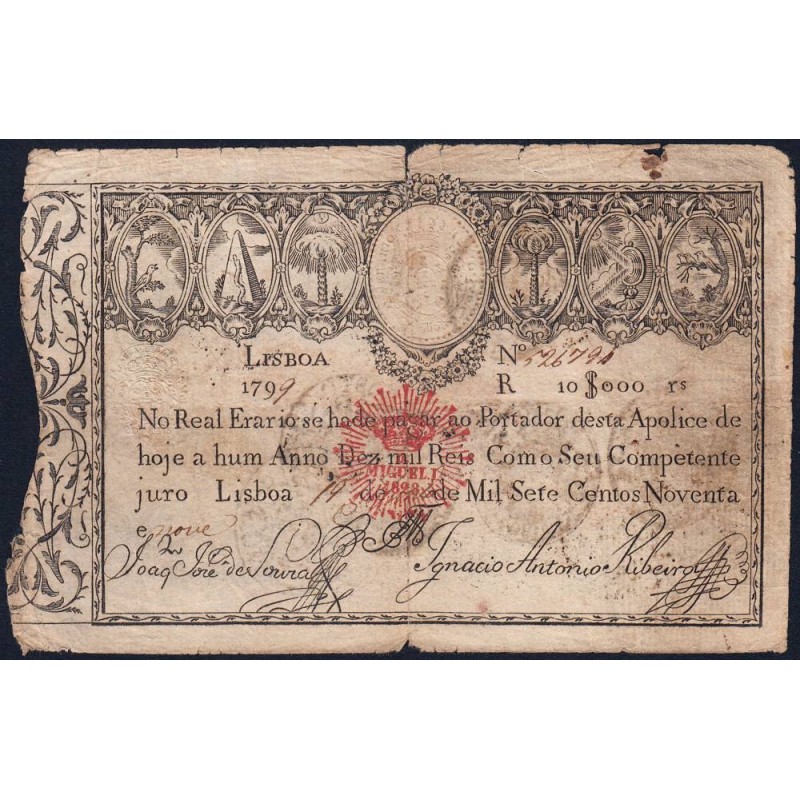 LISBOA Nº 526791
1799 R 10$000 rs
No Real Erario se hade pagar ao Portador desta Apolice de
hoje a hum Anno Dez mil Reis Como Seu Competente
MIGUEL I
1828
juro Lisboa 14 de de Mil Sete Centos Noventa
e nove
Joaq Joze de Souza Ignacio Antonio Ribeiro